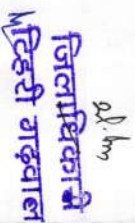 जिलाधिकारी
टिहरी गढ़वाल